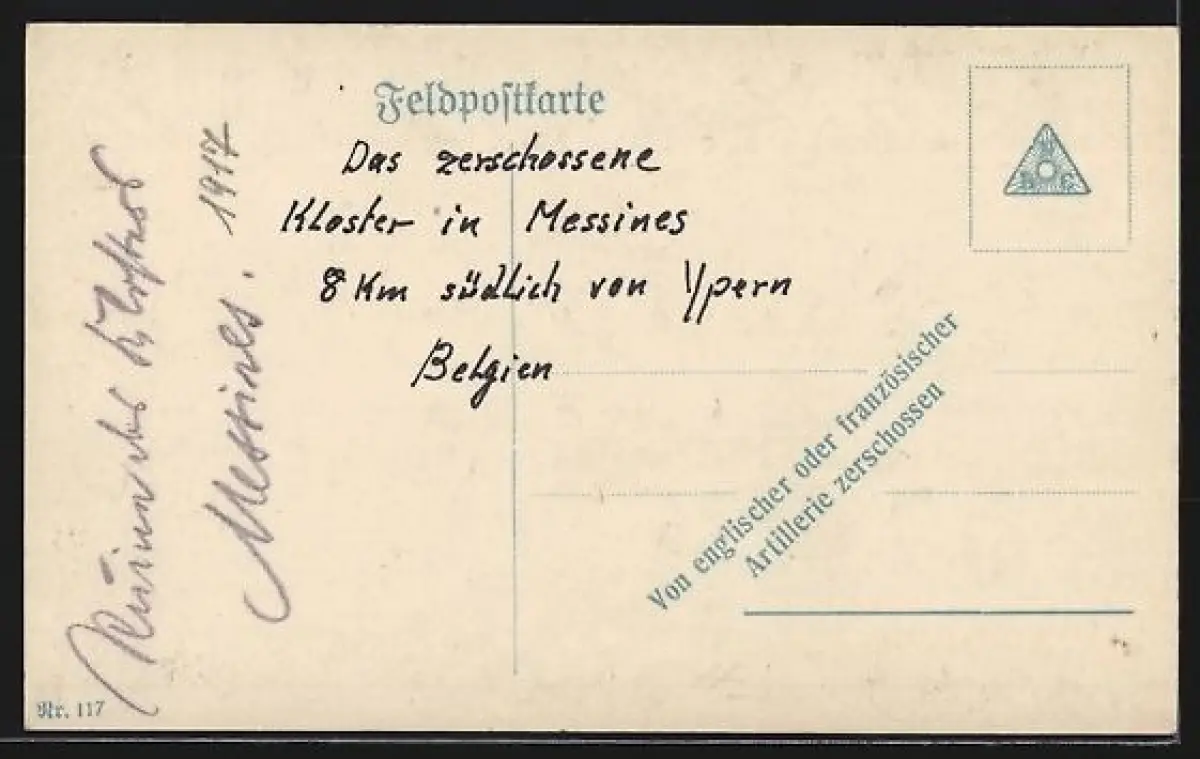 Feldpostkarte
Das zerschossene
Kloster in Messines
8 Km südlich von Ypern
Belgien
Ruinen des Klosters
Messines. 1917
Von englischer oder französischer
Artillerie zerschossen
Nr. 117